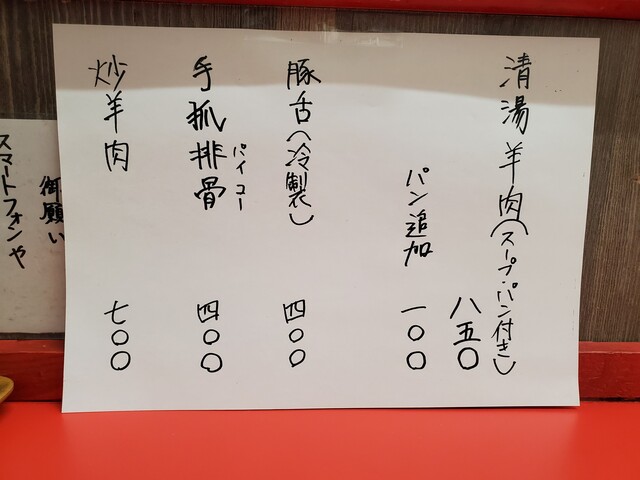 清湯羊肉(スープ・パン付き)
八五〇
パン追加 一〇〇
豚舌(冷製) 四〇〇
手抓排骨 四〇〇
パイコー
炒羊肉 七〇〇
御願い
スマートフォンや